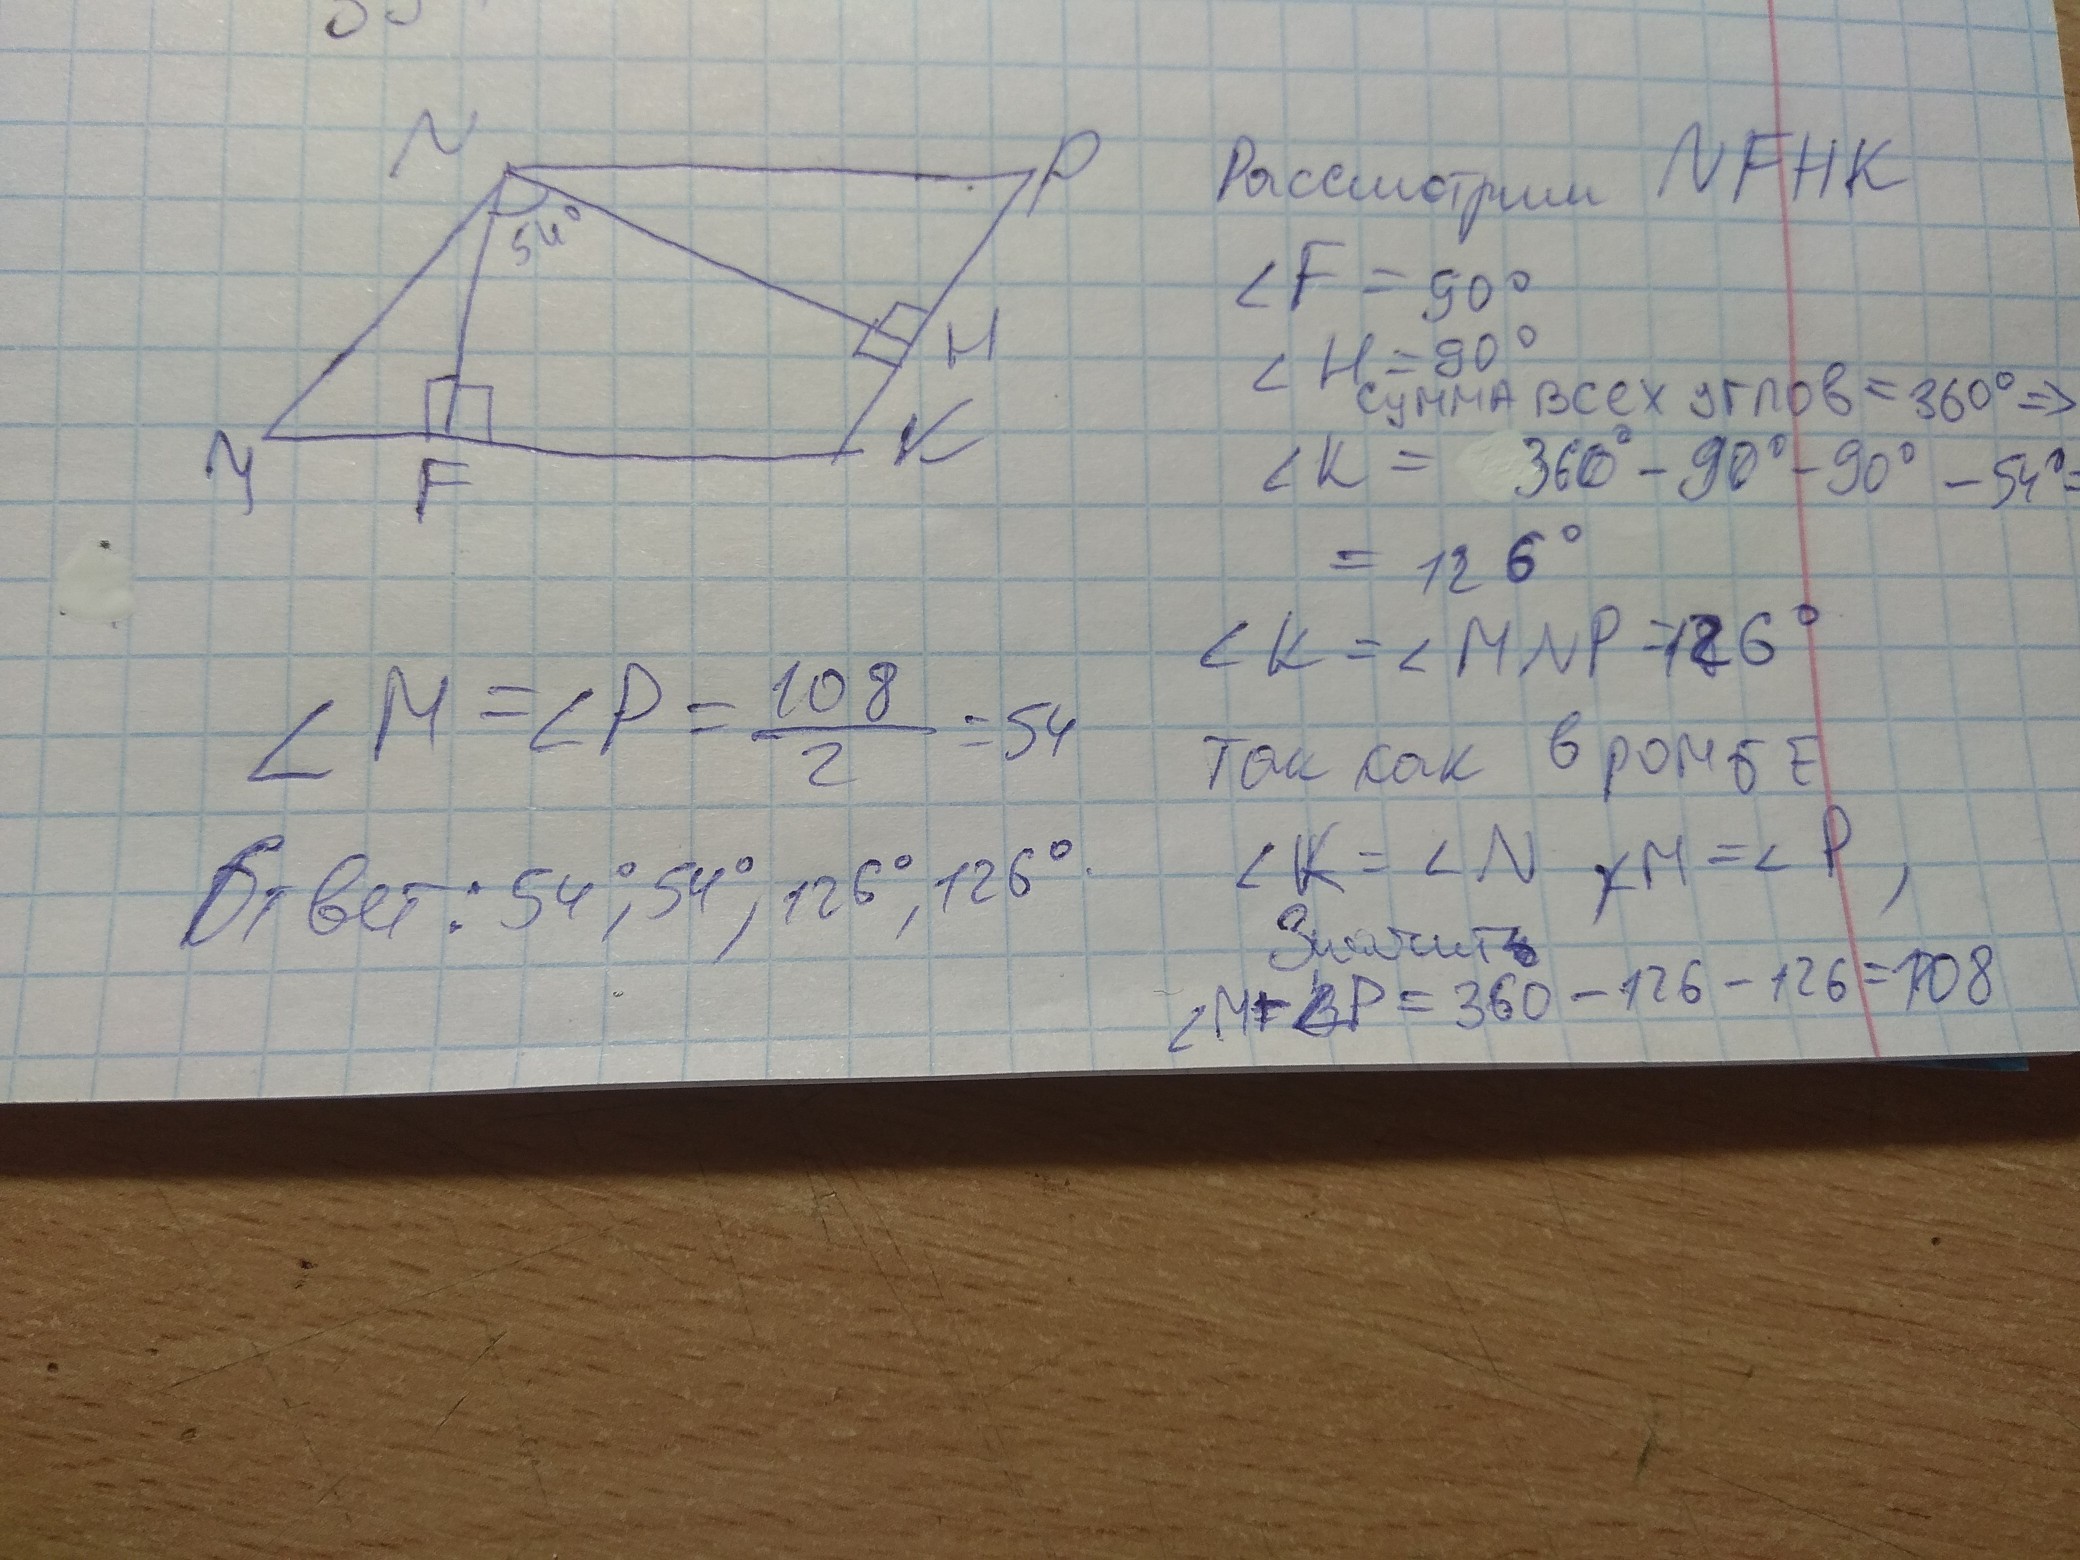 N
P
54°
H
M
F
K
Рассмотрим NFHK
∠F = 90°
∠H = 90°
сумма всех углов = 360° =>
∠K = 360° - 90° - 90° - 54° =
= 126°
∠K = ∠MNP = 126°
Так как в ромбе
∠K = ∠N ∠M = ∠P,
Значить
∠M + ∠P = 360 - 126 - 126 = 108
∠M = ∠P = 108/2 = 54
Ответ: 54°, 54°, 126°, 126°.